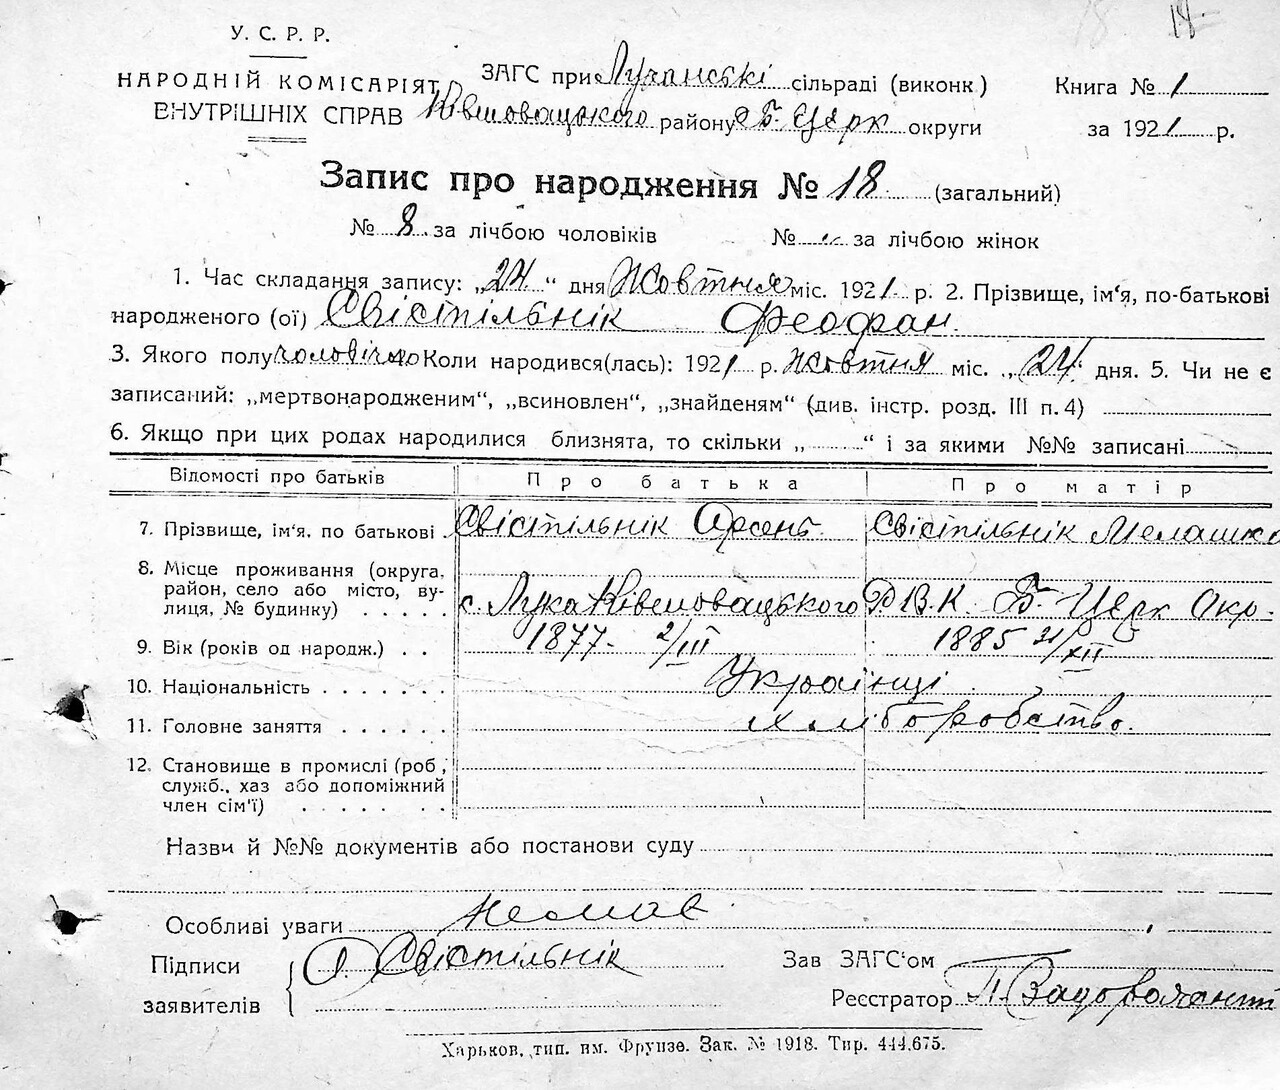 14
У. С. Р. Р.
НАРОДНІЙ КОМІСАРІЯТ
ВНУТРІШНІХ СПРАВ
ЗАГС при Лучанські сільраді (виконк) Книга № 1
району Б. Церк округи за 1921 р.
Запис про народження № 18 (загальний)
№ 8 за лічбою чоловіків № за лічбою жінок
1. Час складання запису: „24“ дня Жовтня міс. 1921 р. 2. Прізвище, ім‘я, по-батькові
народженого (ої) Свістільнік Феофан.
3. Якого полу 4. Коли народився(лась): 1921 р. жовтня міс. „24“ дня. 5. Чи не є
записаний: „мертвонародженим“, „всиновлен“, „знайденям“ (див. інстр. розд. III п. 4)
6. Якщо при цих родах народилися близнята, то скільки „ “ і за якими №№ записані
Відомості про батьків Про батька Про матір
7. Прізвище, ім‘я, по батькові Свістільнік Арсень. Свістільнік Мелашка
8. Місце проживання (округа,
район, село або місто, ву-
лиця, № будинку) с. Лука Р.В.К. Б. Церк Окр.
9. Вік (років од народж.) 1877. 2/III 1885 21/XII
10. Національність Українці
11. Головне заняття хліборобство.
12. Становище в промислі (роб,
служб., хаз або допоміжний
член сім‘ї)
Назви й №№ документів або постанови суду
Особливі уваги Немає
Підписи
заявителів А. Свістільнік
Зав ЗАГС‘ом
Реєстратор П.
Харьков, тип. им. Фрунзе. Зак. № 1918. Тир. 444.675.